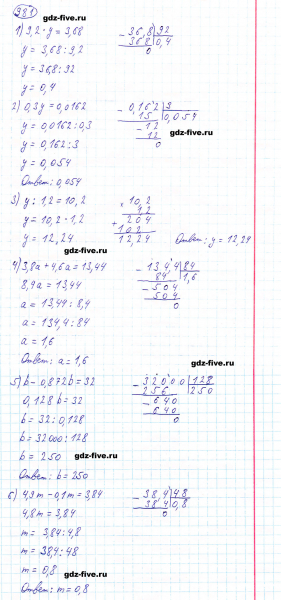 981
gdz-five.ru
1) 9,2 · y = 3,68
y = 3,68 : 9,2
y = 36,8 : 92
y = 0,4
36,8 | 92
36 8 | 0,4
0
2) 0,3y = 0,0162
y = 0,0162 : 0,3
y = 0,162 : 3
y = 0,054
Ответ: 0,054
0,162 | 3
15 | 0,054
12
12
0
gdz-five.ru
3) y : 1,2 = 10,2
y = 10,2 · 1,2
y = 12,24
× 10,2
1,2
+ 204
102
12,24
Ответ: y = 12,24
gdz-five.ru
4) 3,8a + 4,6a = 13,44
8,4a = 13,44
a = 13,44 : 8,4
a = 134,4 : 84
a = 1,6
Ответ: a = 1,6
134,4 | 84
84 | 1,6
504
504
0
gdz-five.ru
5) b - 0,872b = 32
0,128b = 32
b = 32 : 0,128
b = 32000 : 128
b = 250
Ответ: b = 250
32000 | 128
256 | 250
640
640
0
gdz-five.ru
6) 4,9m - 0,1m = 3,84
4,8m = 3,84
m = 3,84 : 4,8
m = 38,4 : 48
m = 0,8
Ответ: m = 0,8
38,4 | 48
38 4 | 0,8
0
gdz-five.ru